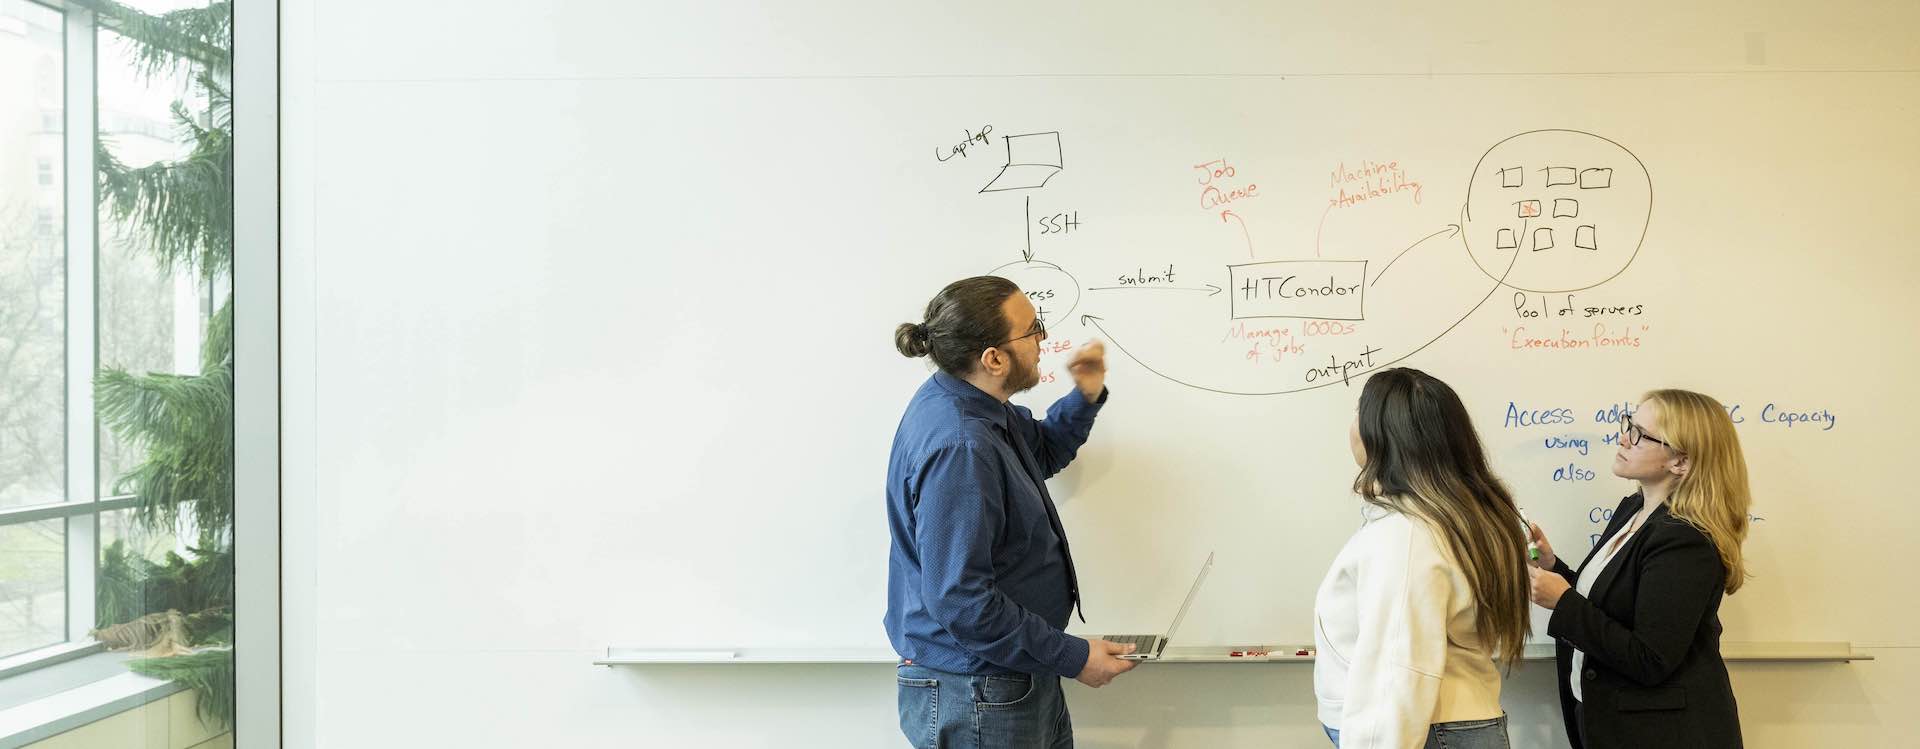 Laptop
SSH
submit
Job
Queue
Machine
Availability
HTCondor
Manage 1000s
of jobs
output
Pool of servers
"Execution Points"
Access Capacity
using
also